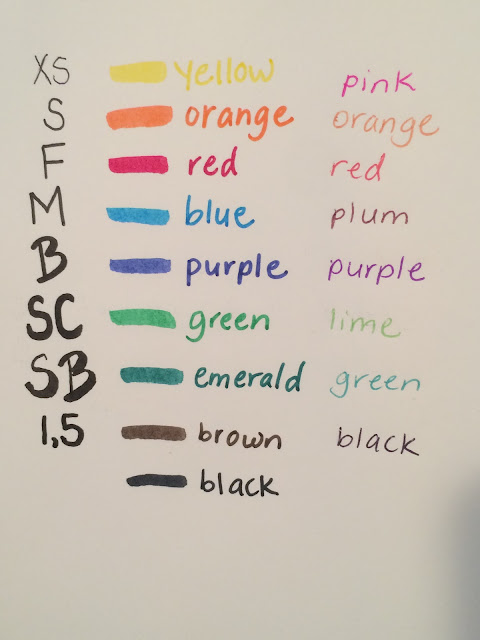 XS yellow pink
S orange orange
F red red
M blue plum
B purple purple
SC green lime
SB emerald green
1,5 brown black
black